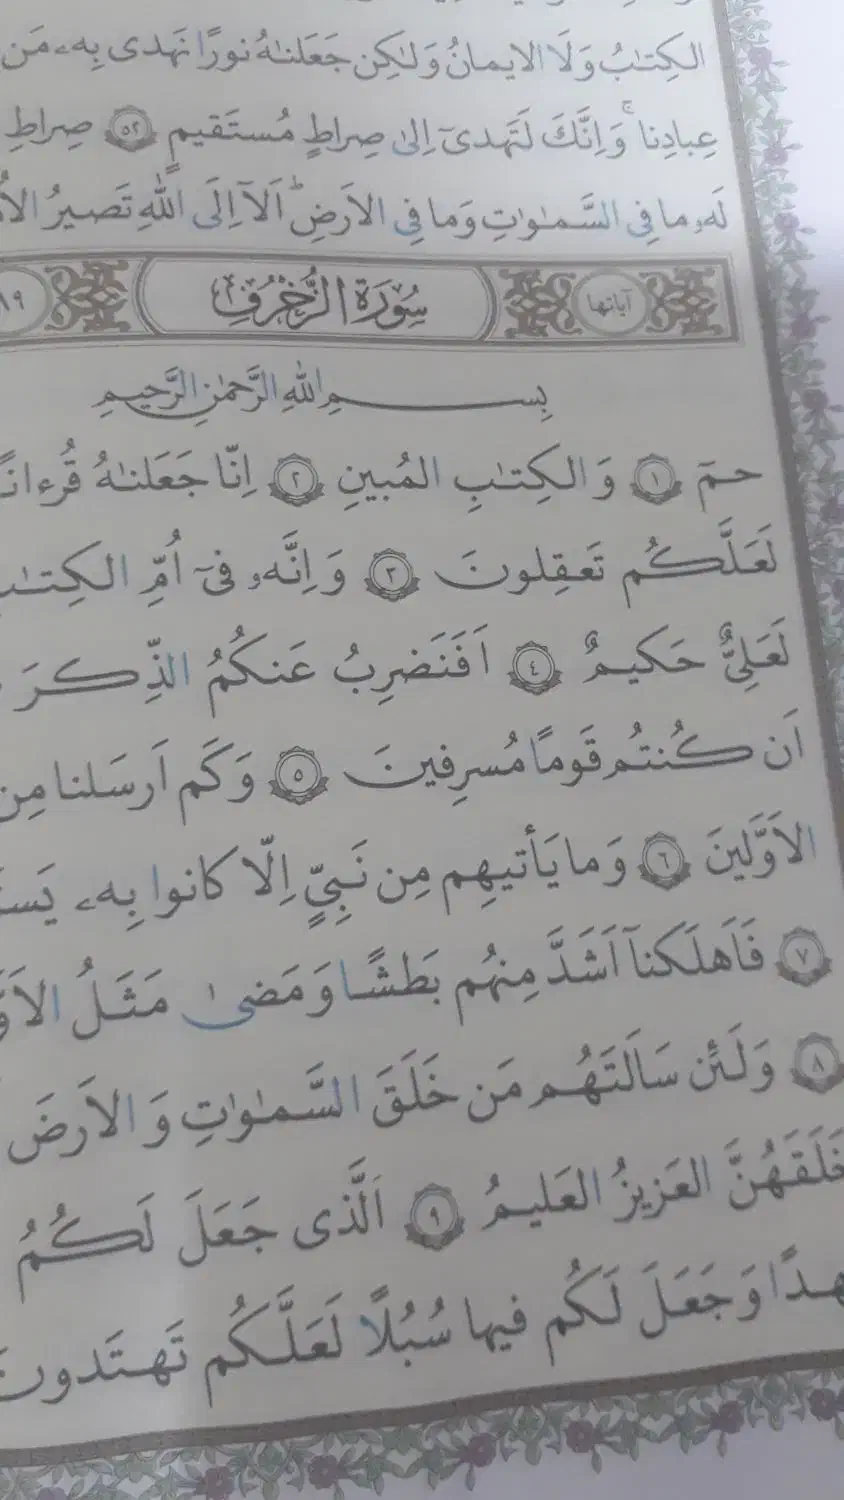 الكِتٰبُ وَلَا الايمانُ وَلٰكِن جَعَلنٰهُ نورًا نَهدى بِهۦ مَن
عِبادِنا ۚ وَاِنَّكَ لَتَهدىٓ اِلىٰ صِراطٍ مُستَقيمٍ ٥٢ صِراطِ
لَهۥ ما فِى السَّمٰوٰتِ وَما فِى الاَرضِ ۗ اَلآ اِلَى اللّٰهِ تَصيرُ
آياتها سُورَةُ الزُّخْرُفِ ٨٩
بِسمِ اللّٰهِ الرَّحمٰنِ الرَّحيمِ
حمٓ ١ وَالكِتٰبِ المُبينِ ٢ اِنّا جَعَلنٰهُ قُرءانًا
لَعَلَّكُم تَعقِلونَ ٣ وَاِنَّهۥ فىٓ اُمِّ الكِتٰبِ
لَعَلِىٌّ حَكيمٌ ٤ اَفَنَضرِبُ عَنكُمُ الذِّكرَ
اَن كُنتُم قَومًا مُسرِفينَ ٥ وَكَم اَرسَلنا مِن
الاَوَّلينَ ٦ وَما يَأتيهِم مِن نَبِىٍّ اِلّا كانوا بِهۦ
٧ فَاَهلَكنآ اَشَدَّ مِنهُم بَطشًا وَمَضىٰ مَثَلُ
٨ وَلَئِن سَاَلتَهُم مَن خَلَقَ السَّمٰوٰتِ وَالاَرضَ
خَلَقَهُنَّ العَزيزُ العَليمُ ٩ اَلَّذى جَعَلَ لَكُمُ
مَهدًا وَجَعَلَ لَكُم فيها سُبُلًا لَعَلَّكُم تَهتَدونَ